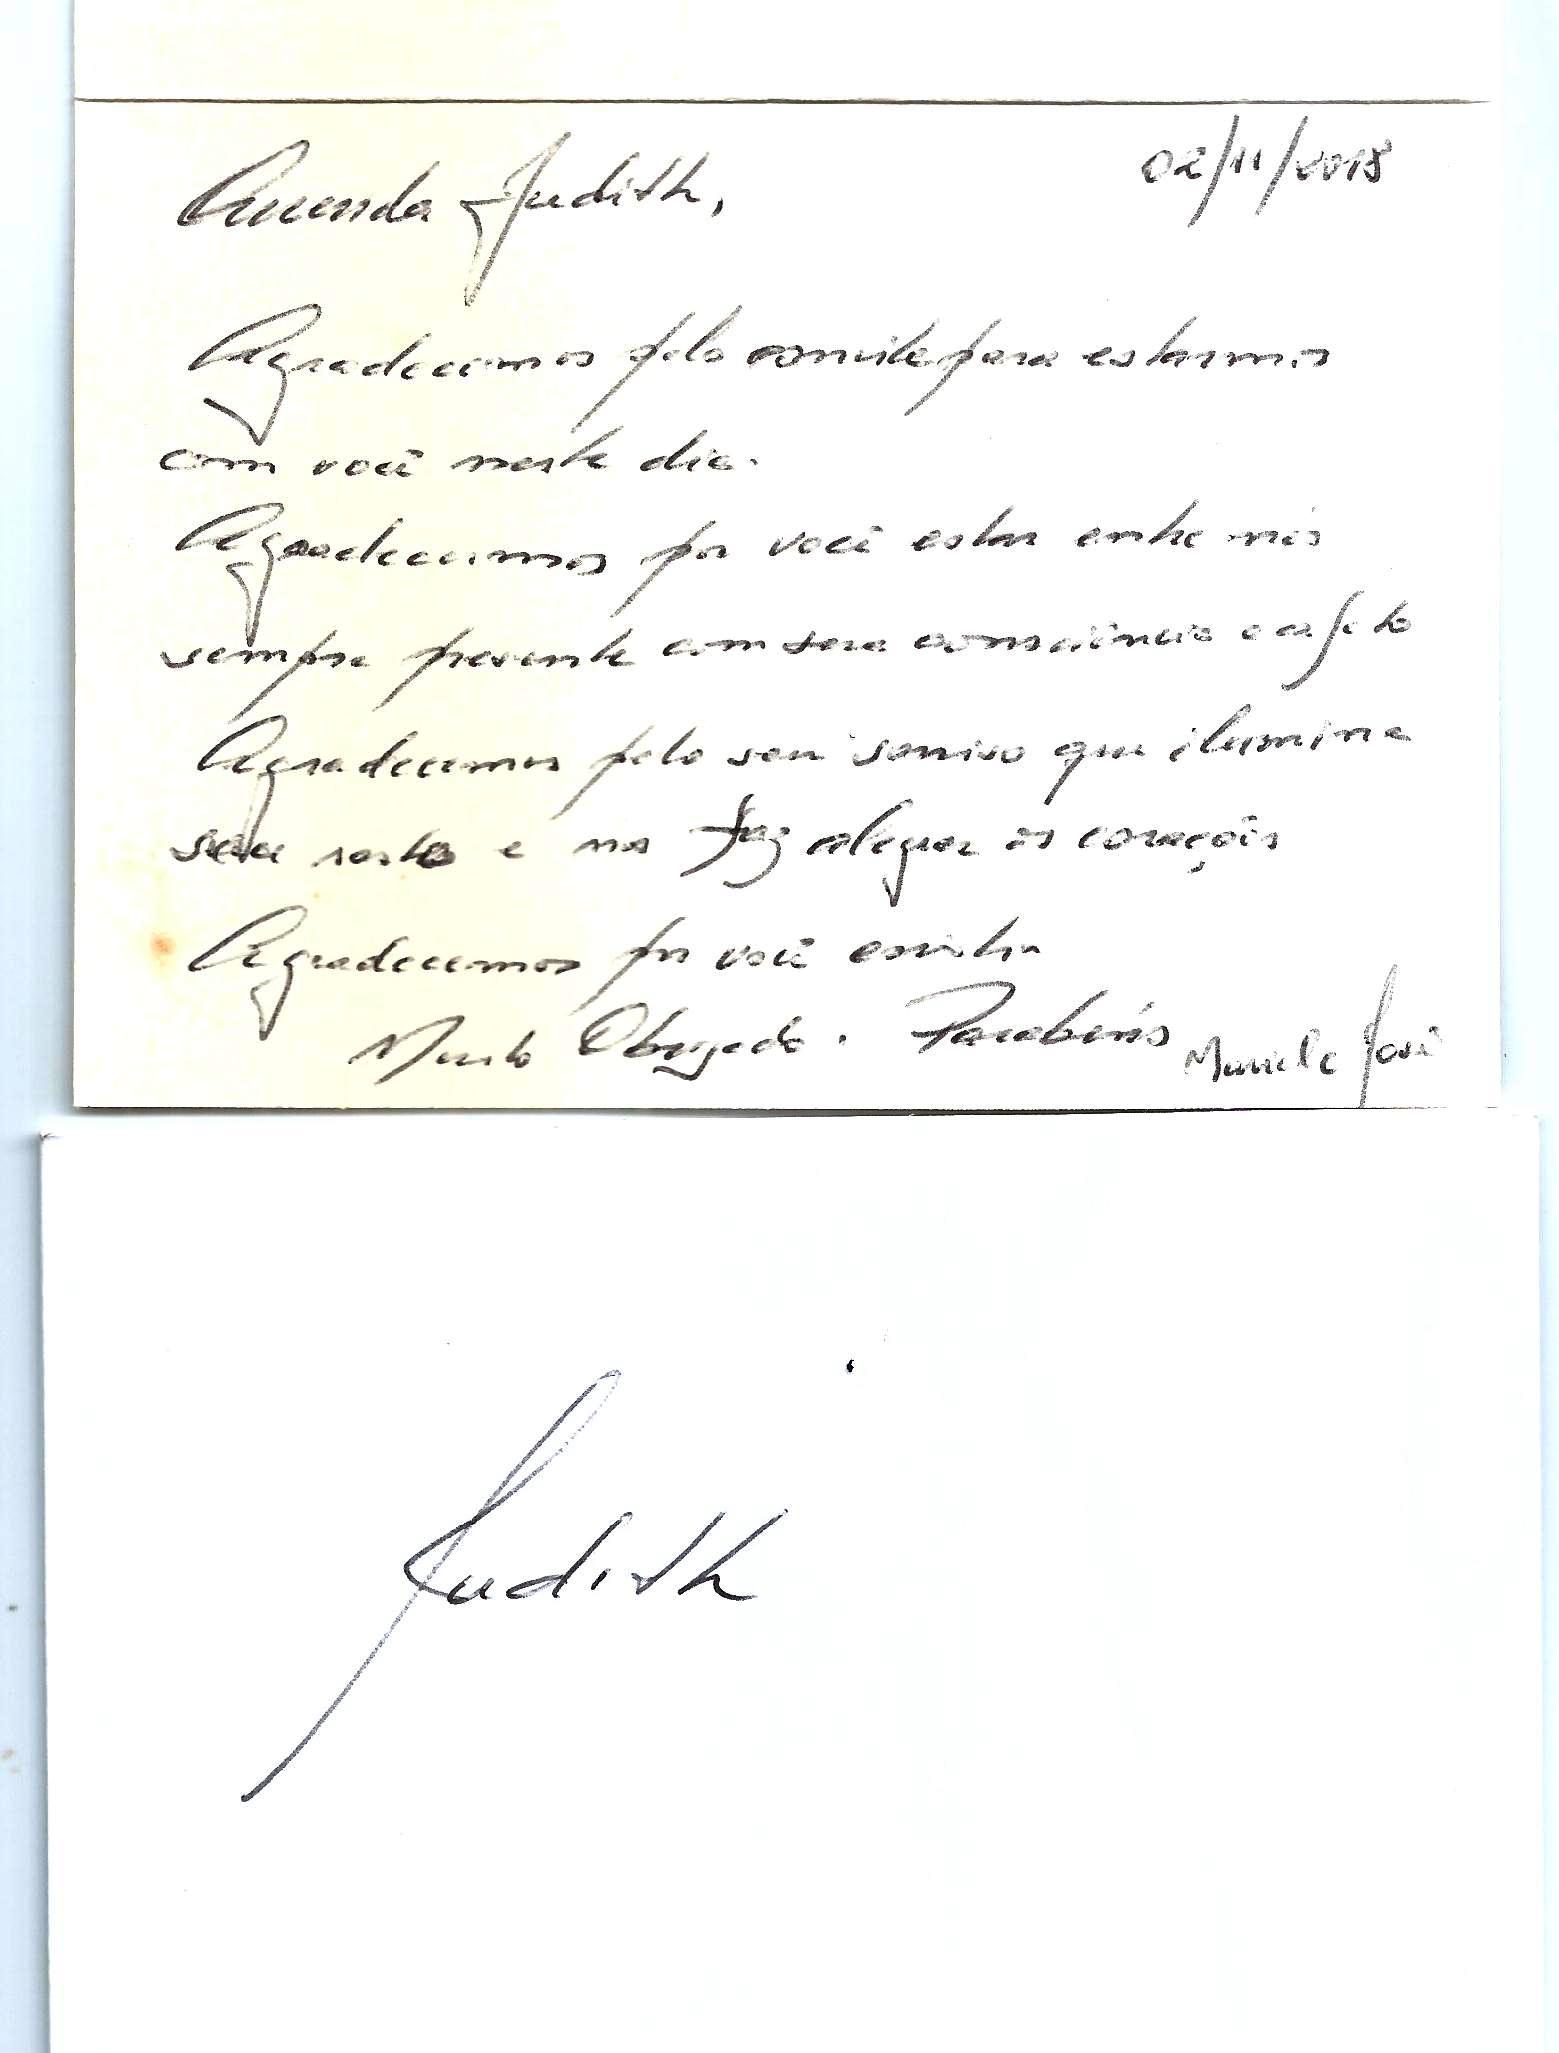 Querida Judith,
02/11/2018
Agradecemos pelo convite para estarmos
com você neste dia.
Agradecemos por você estar entre nós
sempre presente com sua consciência e afeto
Agradecemos pelo seu sorriso que ilumina
seu rosto e nos faz alegrar os corações
Agradecemos por você existir
Muito Obrigado. Parabéns
José
Judith